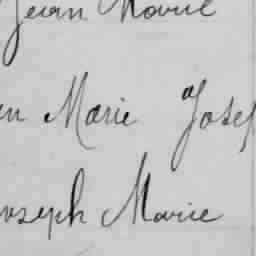 Jean Marie
en Marie Josep
oseph Marie